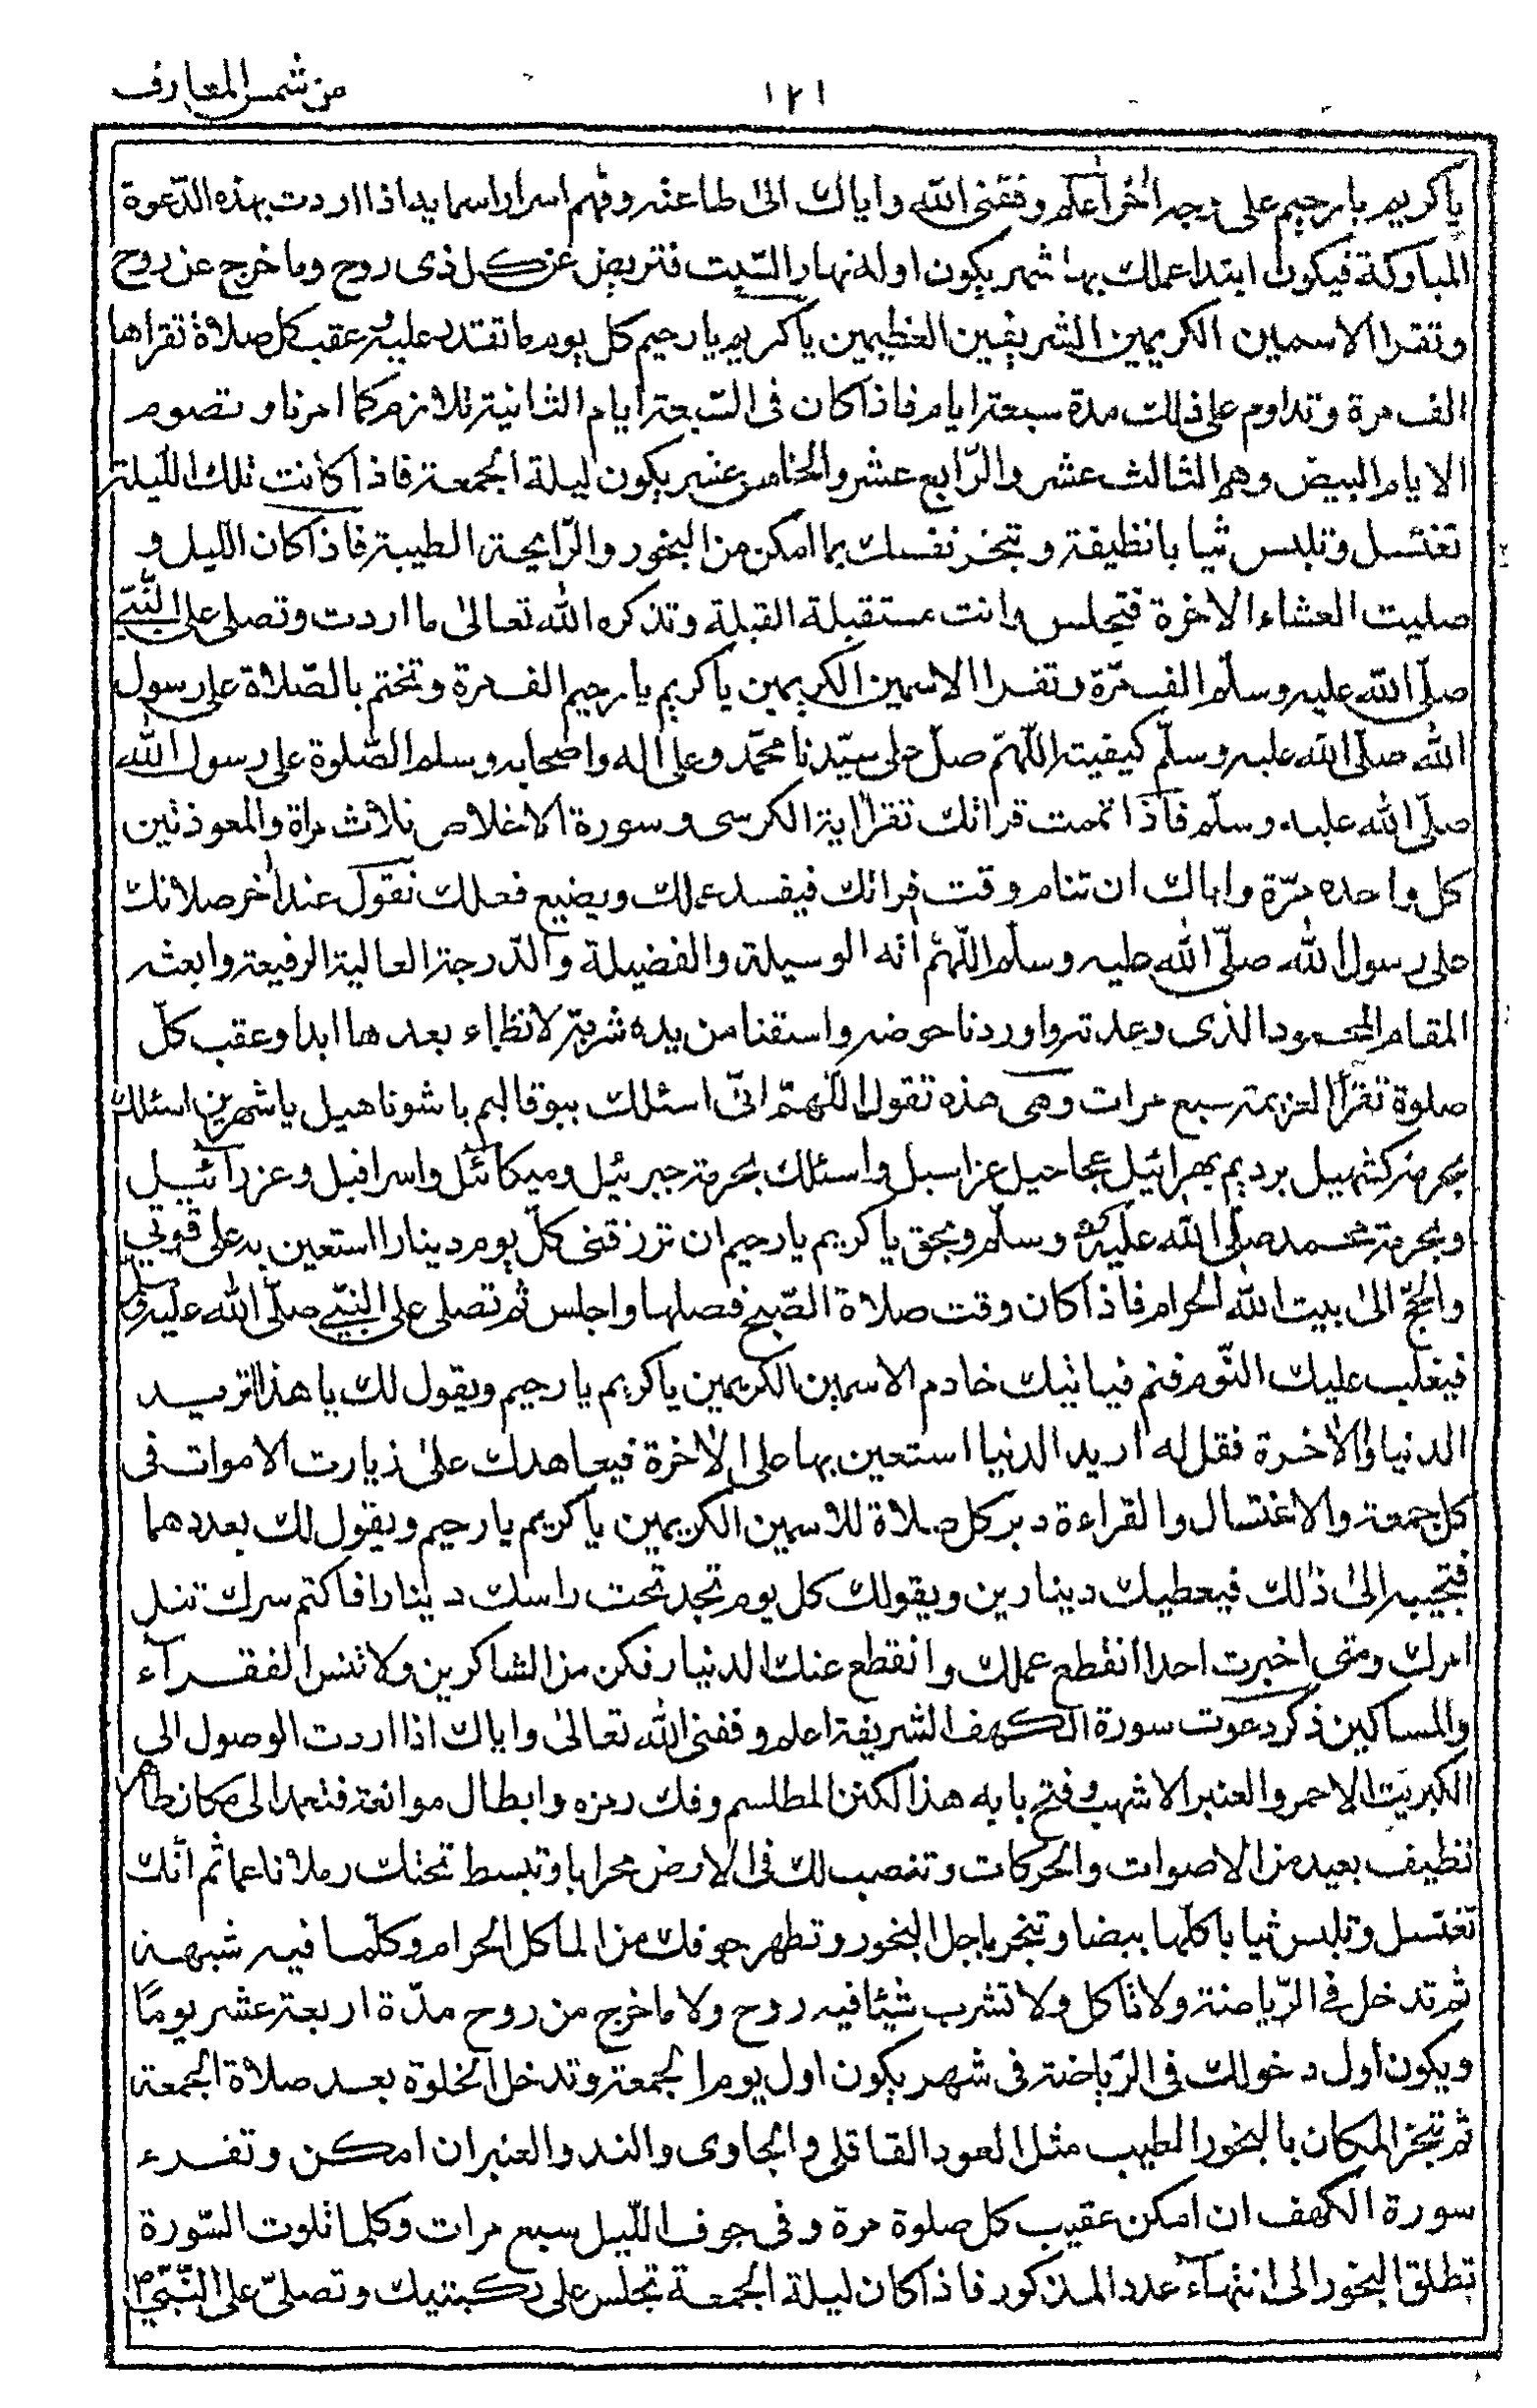 من شمس المعارف
١٢١
ياكريم يارحيم على وجه اخر اعلم وفقنى الله واياك الى طاعته وفهم اسرار اسمايه اذا اردت بهذه الدّعوة
المباركة فيكون ابتدا عملك بها شهر يكون اوله نهار السّبت فتريض عن كل ذى روح وما خرج عن روح
وتقرا الاسمين الكريمين الشريفين العظيمين ياكريم يا رحيم كل يوم ما تقتدر عليه وعقب كل صلاة تقراها
الف مرة وتداوم على ذلك مدة سبعة ايام فاذا كان فى السّبعة ايام الثانية تلازم كما امرنا وتصوم
الايام البيض وهم الثالث عشر والرّابع عشر والخامس عشر يكون ليلة الجمعة فاذا كانت تلك الليلة
تغتسل وتلبس ثيابا نظيفة وتبخر نفسك بما امكن من البخور والرّايحة الطيبة فاذا كان الليل و
صليت العشاء الاخرة فتجلس وانت مستقبلة القبلة وتذكره الله تعالى ما اردت وتصلى على النّبىّ
صلّى الله عليه وسلّم الف مرّة وتقرا الاسمين الكريمين ياكريم يارحيم الف مرة وتختم بالصّلاة على رسول
الله صلّى الله عليه وسلّم كيفيته اللّهمّ صلّ على سيّدنا محمّد وعلى اله واصحابه وسلم الصّلوة على رسول الله
صلّى الله عليه وسلّم فاذا تممت قرائك تقرا اية الكرسى وسورة الاخلاص ثلاث مراة والمعوذتين
كل واحده مرّة واياك ان تنام وقت قرائك فيفسد عملك ويضيع فعلك تقول عند اخر صلاتك
على رسول الله صلّى الله عليه وسلّم اللّهمّ اته الوسيلة والفضيلة والدّرجة العالية الرفيعة وابعثه
المقام المحمود الذى وعدته واوردنا حوضه واسقنا من يده شربة لانظماء بعدها ابدا وعقب كلّ
صلوة تقرا العزيمة سبع مرات وهى هذه تقول اللّهمّ انّى اسئلك ببوقاليم باشوناهيل ياشهرين اسئلك
بحرمة كشهيل برديم يهرائيل عجاحيل عزاسيل واسئلك بحرمة جبرئيل وميكائل واسرافيل وعزرائيل
وبحرمة محمد صلّى الله عليه وسلّم وبحق ياكريم يارحيم ان ترزقنى كلّ يوم دينارا استعين به على قوتي
والحجّ الى بيت الله الحرام فاذا كان وقت صلاة الصّبح فصلها واجلس ثم تصلى على النبيّ صلّى الله عليه وسلم
فيغلب عليك النّوم فنم فياتيك خادم الاسمين الكريمين ياكريم يارحيم ويقول لك يا هذا تريد
الدنيا والاخرة فقل له اريد الدنيا استعين بها على الاخرة فيعاهدك على ذيارت الاموات فى
كل جمعة والاغتسال والقراءة دبر كل صلاة للاسمين الكريمين ياكريم يارحيم ويقول لك بعددهما
فتجيبه الى ذلك فيعطيك دينارين ويقولك كل يوم تجد تحت راسك دينارا فاكتم سرك تنل
امرك ومتى اخبرت احدا انقطع عملك وانقطع عنك الدنيار فكن من الشاكرين ولاتنس الفقرآء
والمساكين ذكر دعوت سورة الكهف الشريفة اعلم وفقنى الله تعالى واياك اذا اردت الوصول الى
الكبريت الاحمر والعنبر الاشهب وفتح بابه هذا الكنز المطلسم وفك رمزه وابطال موانعة فتعمد الى مكان طاهر
نظيف بعيد من الاصوات والحركات وتنصب لك فى الارض محرابا وتبسط تحتك رملا ناعما ثم أنّك
تغتسل وتلبس ثيابا كلّها بيضا وتبخر باجل البخور وتطهر جوفك من الماكل الحرام وكلّما فيه شبهة
ثم تدخل فى الرّياضة ولاتاكل ولاتشرب شيئا فيه روح ولا ماخرج من روح مدّة اربعة عشر يومًا
ويكون أول دخولك فى الرّياضة فى شهر يكون اول يوم الجمعة وتدخل الخلوة بعد صلاة الجمعة
ثم تبخر المكان بالبخور الطيب مثل العود القاقلى والجاوى والند والعنبر ان امكن وتقرء
سورة الكهف ان امكن عقيب كل صلوة مرة وفى جوف اللّيل سبع مرات وكلما تلوت السّورة
تطلق البخور الى انتهآء عدد المذكور فاذا كان ليلة الجمعة تجلس على ركبتيك وتصلىّ على النّبيّ م